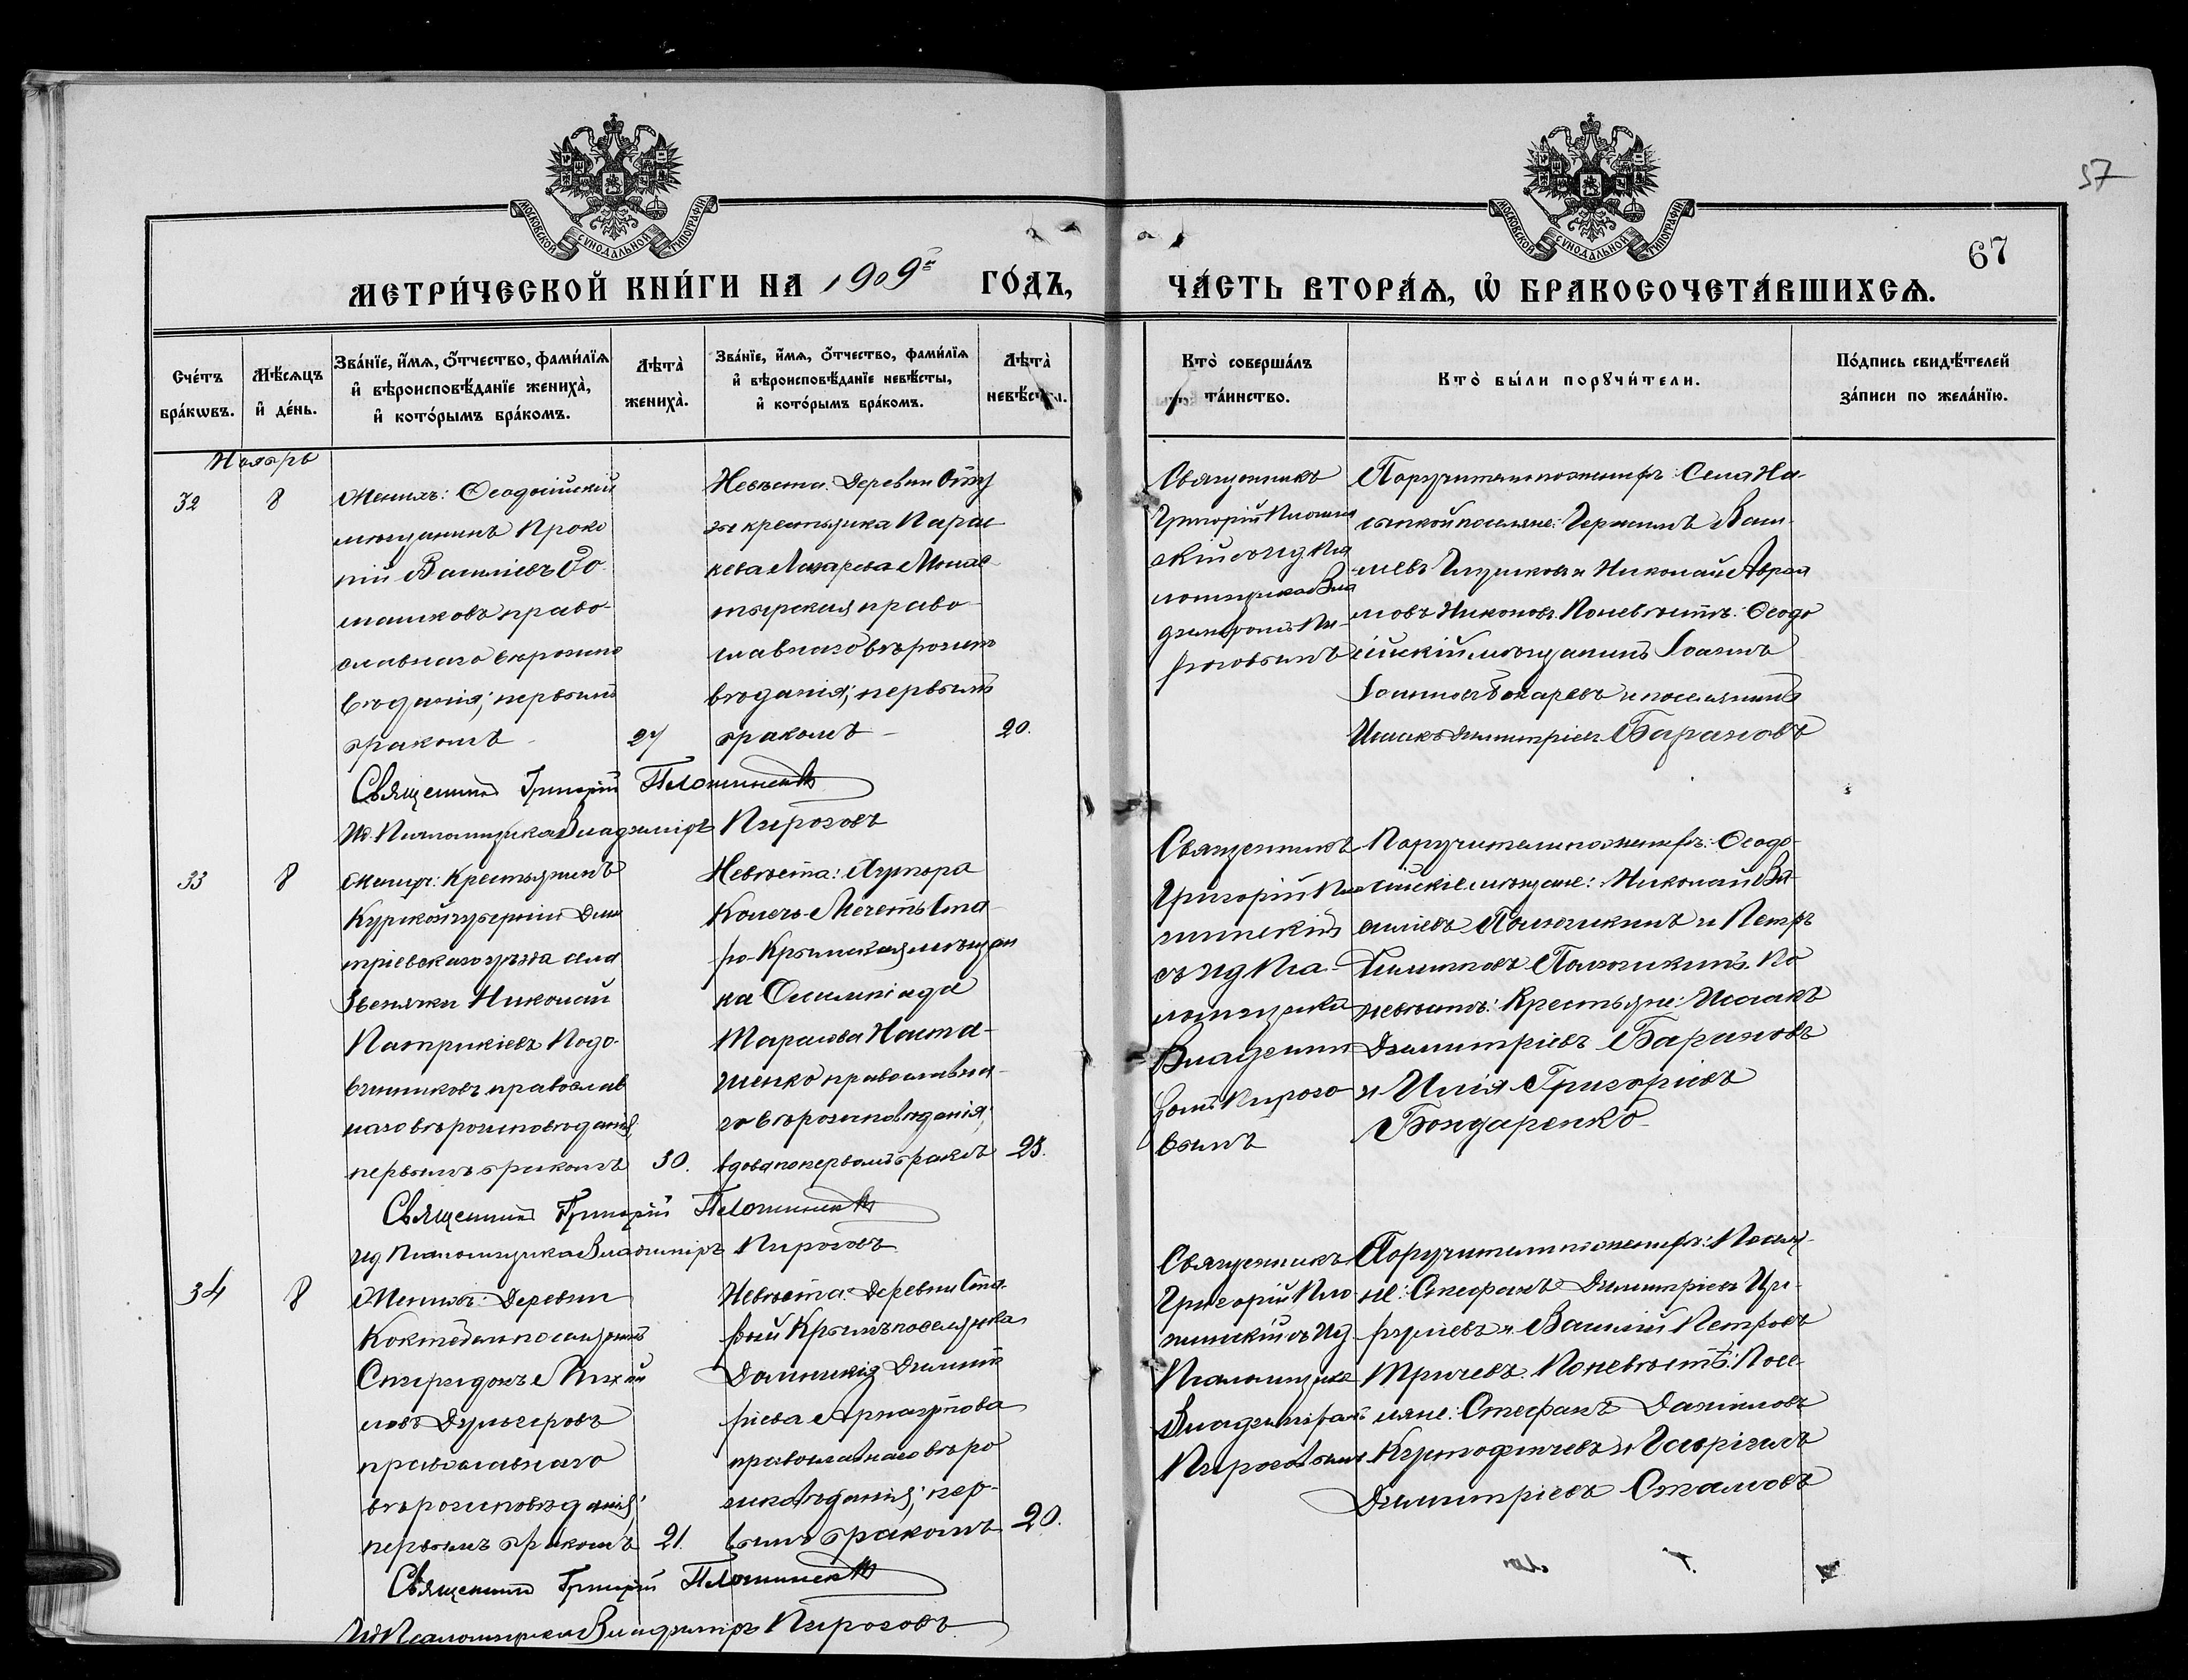 57
67
МОСКОВСКОЙ СѴНОДАЛЬНОЙ ТИПОГРАФІИ
МОСКОВСКОЙ СѴНОДАЛЬНОЙ ТИПОГРАФІИ
МЕТРИ́ЧЕСКОЙ КНИ́ГИ НА 1909й ГО́ДЪ,
ЧА́СТЬ ВТОРА́Ѧ, Ѡ БРАКОСОЧЕТА́ВШИХСѦ.
Сче́тъ бра́кѡвъ.
Мѣ́сѧцъ и҆ де́нь.
Зва́нїе, и҆́мѧ, ѻ҆́тчество, фами́лїѧ
и҆ вѣроисповѣ́данїе жениха̀,
и҆ кото́рымъ бра́комъ.
Лѣ́та̀ жениха̀.
Зва́нїе, и҆́мѧ, ѻ҆́тчество, фами́лїѧ
и҆ вѣроисповѣ́данїе невѣ́сты,
и҆ кото́рымъ бра́комъ.
Лѣ́та̀ невѣ́сты.
Кто̀ соверша́лъ
та́инство.
Кто̀ бы́ли порꙋчи́тели.
По́дпись свидѣ́телей
за́писи по жела́нїю.
Ноябрь
32
8
Женихъ: Ѳеодосійскій
мѣщанинъ Проко
пій Василіевъ
машковъ право-
славнаго вѣроиспо
вѣданія; первымъ
бракомъ
27
Невѣста. Деревни Отту
зы крестьянка Парас
кева Лазарева Монас
тырская право-
славнаго вѣроиспо
вѣданія; первымъ
бракомъ
20.
Священникъ
Григорій
скій съ Ид. Пса
ломщика Вла
диміромъ Пи-
роговымъ
Поручители по женихѣ: Села На-
сыпкой поселяне: Герасимъ Васи-
ліевъ и Николай Авраа
мовъ Никоновъ. По невѣстѣ: Ѳеодо
сійскій мѣщанинъ Іоаннъ
Іоанновъ Бокаревъ и поселянинъ
Исаакъ Димитріевъ Барановъ
Священникъ Григорій
Ид. Псаломщика Владиміръ Пироговъ
33
8
Женихъ: Крестьянинъ
Курской губерніи Дми
тріевскаго уѣзда села
Звенячки Николай
Патрикіевъ Подо-
винниковъ православ
наго вѣроисповѣданія,
первымъ бракомъ
30.
Невѣста: Хутора
Конечь-Мечеть Ста-
ро-Крымская мѣщан
ка Олимпіада
ТарасоваНоста-
шенко православна-
го вѣроисповѣданія;
вдова по первомъ бракѣ
25.
Священникъ
Григорій
съ Ид. Пса-
ломщика
Владими
ромъ Пирого
вымъ
Поручители по женихѣ: Ѳеодо-
сійскіе мѣщане: Николай Ва-
силіевъ и Петръ
По
невѣстѣ: Крестьяне: Исаакъ
Димитріевъ Барановъ
и Илія Григоріевъ
Бондаренко
Священникъ Григорій
Ид Псаломщика Владиміръ Пироговъ
34
8
Женихъ: Деревни
Коктебели поселянинъ
Спиридонъ Михаи
ловъ Дульгеровъ
православнаго
вѣроисповѣданія;
первымъ бракомъ
21.
Невѣста: Деревни Ста-
рый Крымъ поселянка
Доминикія Димит
ріева Арнаутова
православнаго вѣро
исповѣданія; пер-
вымъ бракомъ
20.
Священникъ
Григорій
съ Ид.
Псаломщика
Владиміромъ
Пироговымъ
Поручители по женихѣ: Поселя-
не: Стефанъ Димитріевъ
и Василій Петровъ
По невѣстѣ: Посе-
ляне: Стефанъ Даніиловъ
и Гавріилъ
Димитріевъ Стамовъ
Священникъ Григорій
Ид Псаломщика Владиміръ Пироговъ